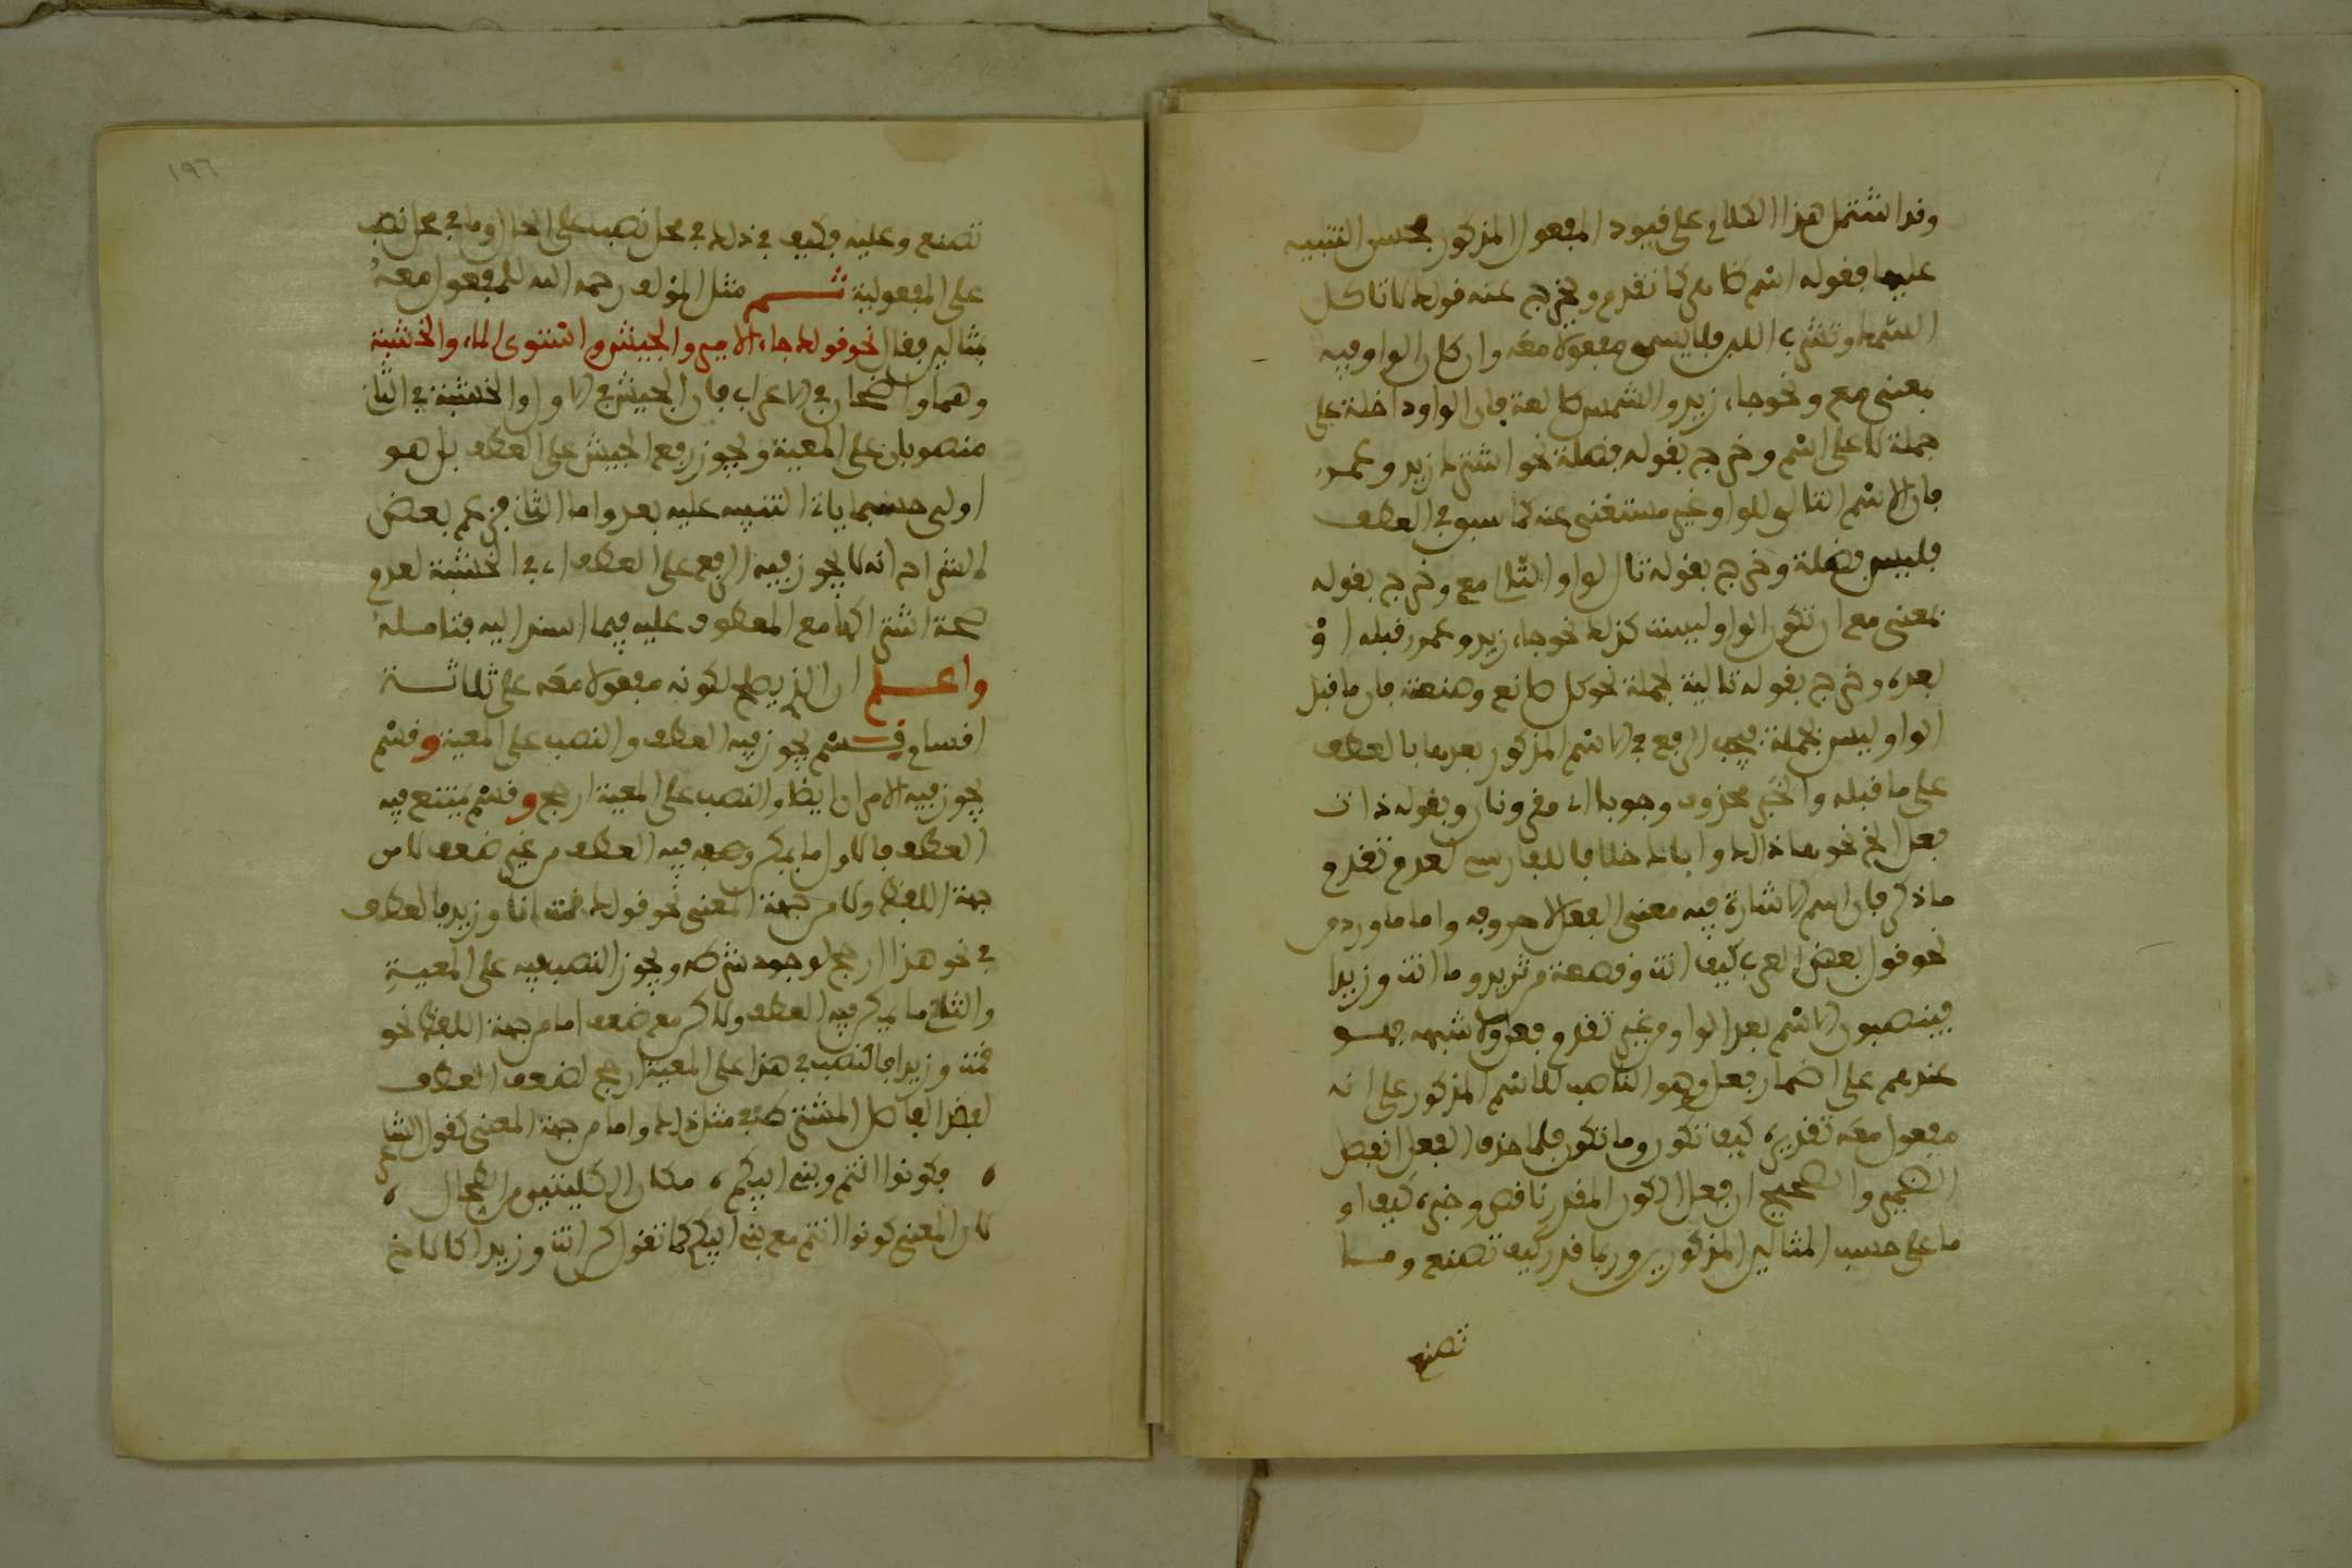 وقد اشتمل هذا الكلام على قيود المفعول المذكور بحسن التنبيه
عليها فقوله اسم ظاهر كما تقدم وخرج عنه قولك لا تاكل
السمك وتشرب اللبن فلا يسمى مفعولا معه وان كان الواو فيه
بمعنى مع ونحو جاء زيد والشمس طالعة فان الواو داخلة على
جملة لا على اسم وخرج بقوله فضلة نحو اشترك زيد وعمرو
فان الاسم التالي للواو غير مستغنى عنه كما سبق في العطف
فليس فضلة وخرج بقوله تال لواو التالي مع وخرج بقوله
بمعنى مع ان تكون الواو ليست كذلك نحو جاء زيد وعمرو قبله او
بعده وخرج بقوله تالية لجملة نحو كل صانع وصنعته فان ما قبل
الواو ليس بجملة فيجب الرفع في الاسم المذكور بعدها بالعطف
على ما قبله والخبر محذوف وجوبا اي مقرونان وبقوله ذات
فعل الخ نحو هذا لك واباك خلافا للفارسي لعدم تقدم
ما ذكر فان اسم الاشارة فيه معنى الفعل لا حروفه واما ما ورد من
نحو قول بعض العرب كيف انت وقصعة من ثريد وما انت وزيدا
فينصبون الاسم بعد الواو من غير تقدم فعل ولا شبهه فهو
عندهم على اضمار فعل وهو الناصب للاسم المذكور على انه
مفعول معه تقديره كيف تكون وما تكون فلما حذف الفعل انفصل
الضمير والصحيح ان فعل الكون المقدر ناقص وخبره كيف او
ما على حسب المثالين المذكورين وربما قدر كيف تصنع وما
تصنع
١٩٦
تصنع وعليه فكيف في ذلك في محل نصب على الحال وما في محل نصب
على المفعولية ثم مثل المؤلف رحمه الله للمفعول معه
بمثالين فقال نحو قولك جاء الامير والجيش واستوى الماء والخشبة
وهما واضحان في الاعراب فان الجيش في الاول والخشبة في الثاني
منصوبان على المعية ويجوز رفع الجيش على العطف بل هو
اولى حسبما ياتي التنبيه عليه بعد واما الثاني فزعم بعض
الشراح انه لا يجوز فيه الرفع على العطف اي في الخشبة لعدم
صحة اشتراكها مع المعطوف عليه فيما اسند اليه فتامله
واعلم ان الذي يصلح لكونه مفعولا معه على ثلاثة
اقسام قسم يجوز فيه العطف والنصب على المعية وقسم
يجوز فيه الامران ايضا والنصب على المعية ارجح وقسم يمتنع فيه
العطف فالاول ما يمكن فيه العطف من غير ضعف لا من
جهة اللفظ ولا من جهة المعنى نحو قولك قمت انا وزيد فالعطف
في نحو هذا ارجح لوجود شرطه ويجوز النصب فيه على المعية
والثاني ما يمكن فيه العطف ولاكن مع ضعف اما من جهة اللفظ نحو
قمت وزيدا فالنصب في هذا على المعية ارجح لضعف العطف
لفقد الفاصل المشترط في مثل ذلك واما من جهة المعنى كقول الشاعر
فكونوا انتم وبني ابيكم مكان الكليتين من الطحال
لان المعنى كونوا انتم مع بني ابيكم كما تقول كن انت وزيدا كالاخ